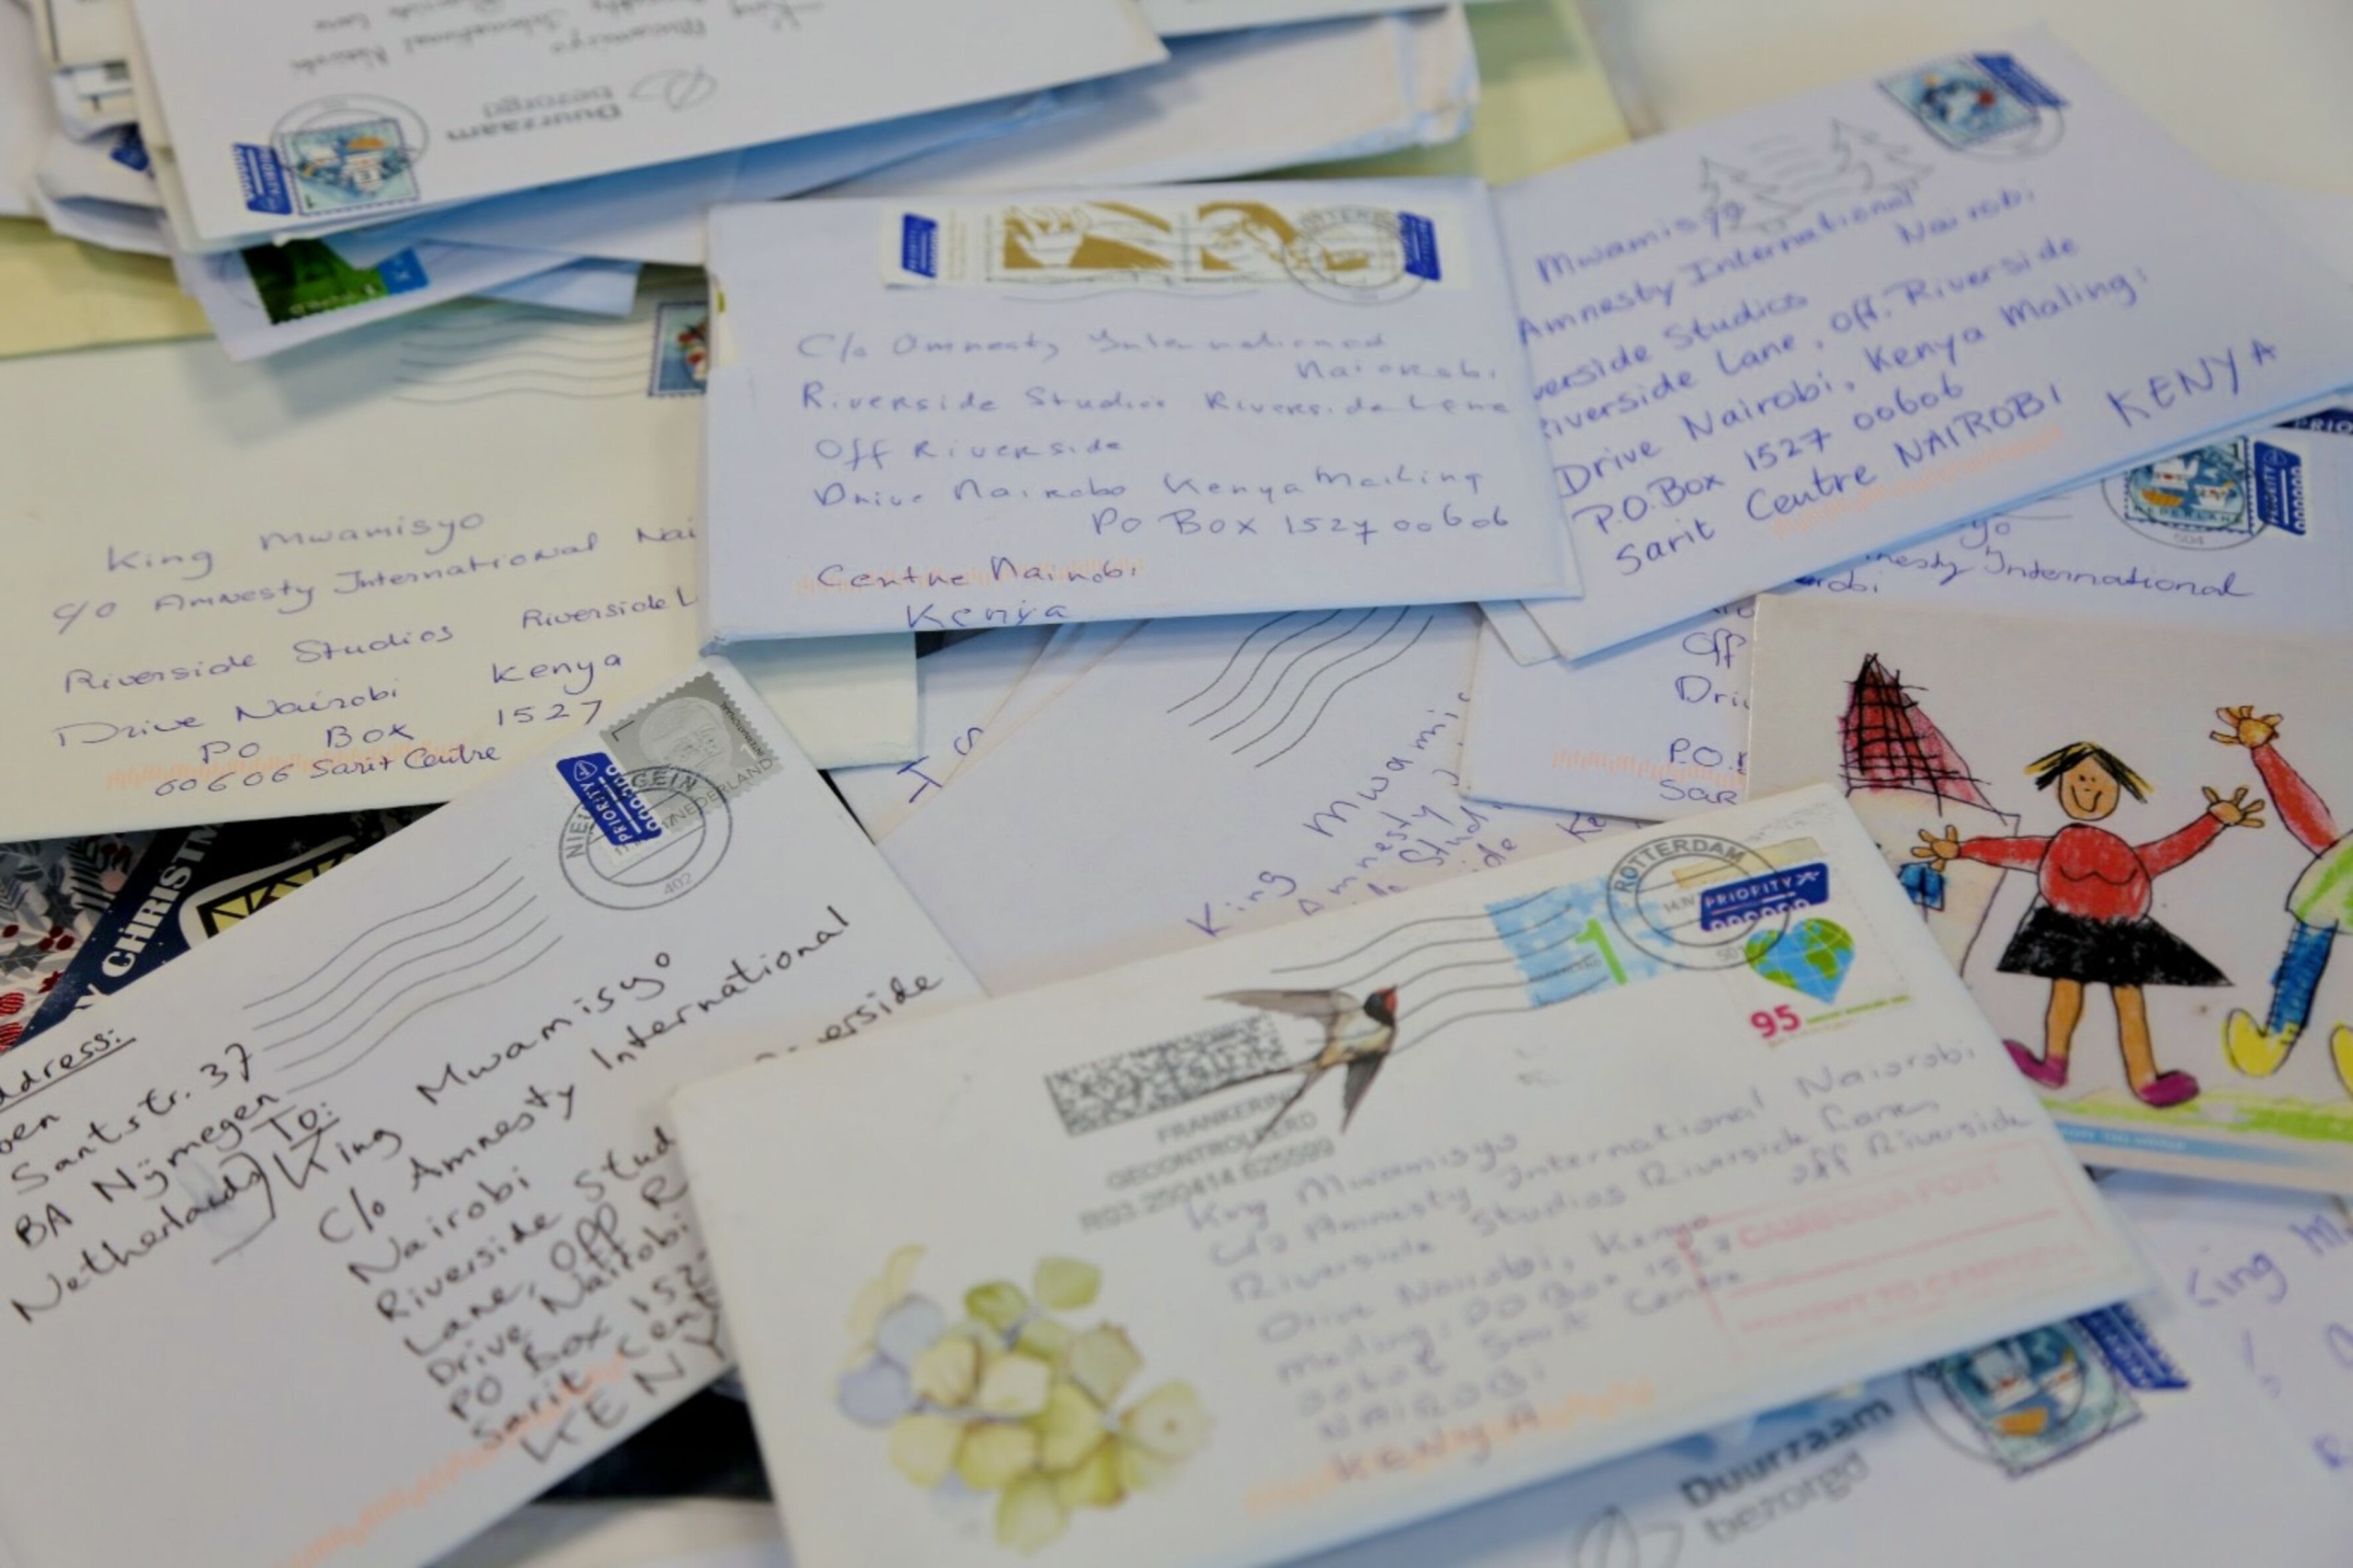 King
Mwamisyo
Amnesty International Nairobi
Duurzaam
bezorgd
C/o Amnesty International
Nairobi.
Riverside Studios Riverside Lane
Off Riverside
Drive Nairobo Kenya Mailing
PO Box 1527 00606
Centre Nairobi
Kenya
Mwamisyo
Amnesty International
Nairobi.
verside Studios
Riverside Lane, Off. Riverside
Drive Nairobi, Kenya Maling:
P.O.Box 1527 00606
Sarit Centre NAIROBI KENYA
King Mwamisyo
c/o Amnesty International Nai
Riverside Studios Riverside L
Drive Nairobi Kenya
PO Box 1527
00606 Sarit Centre
PRIORITY
504
yo
nesty International
robi
Off
Dri
P.O.
Sar
King Mwami
Amnesty
Stud
ide
Ke
CHRISTM
NIEUWEGEIN
402
PRIORITY
NEDERLAND
1
ddress:
oen
Santstr. 37
BA Nijmegen
Netherlands)
To:
King Mwamisyo
C/o Amnesty International
Nairobi
Riverside Stud
erside
Lane, Off R
Drive Nairobi
PO Box 152
Sarit Cent
KENY
ROTTERDAM
14.N
PRIORITY
1
95
FRANKERING
GECONTROLEERD
R03 250414 625599
King Mwamisyo
C/o Amnesty International Nairobi
Riverside Studios Riverside Lane,
off Riverside
Drive Nairobi, Kenya
Mailing: PO Box 1527
00606 Sarit Centre
NAIROBI
KENYA
CAMBODIA POST
Duurzaam
bezorgd
King M